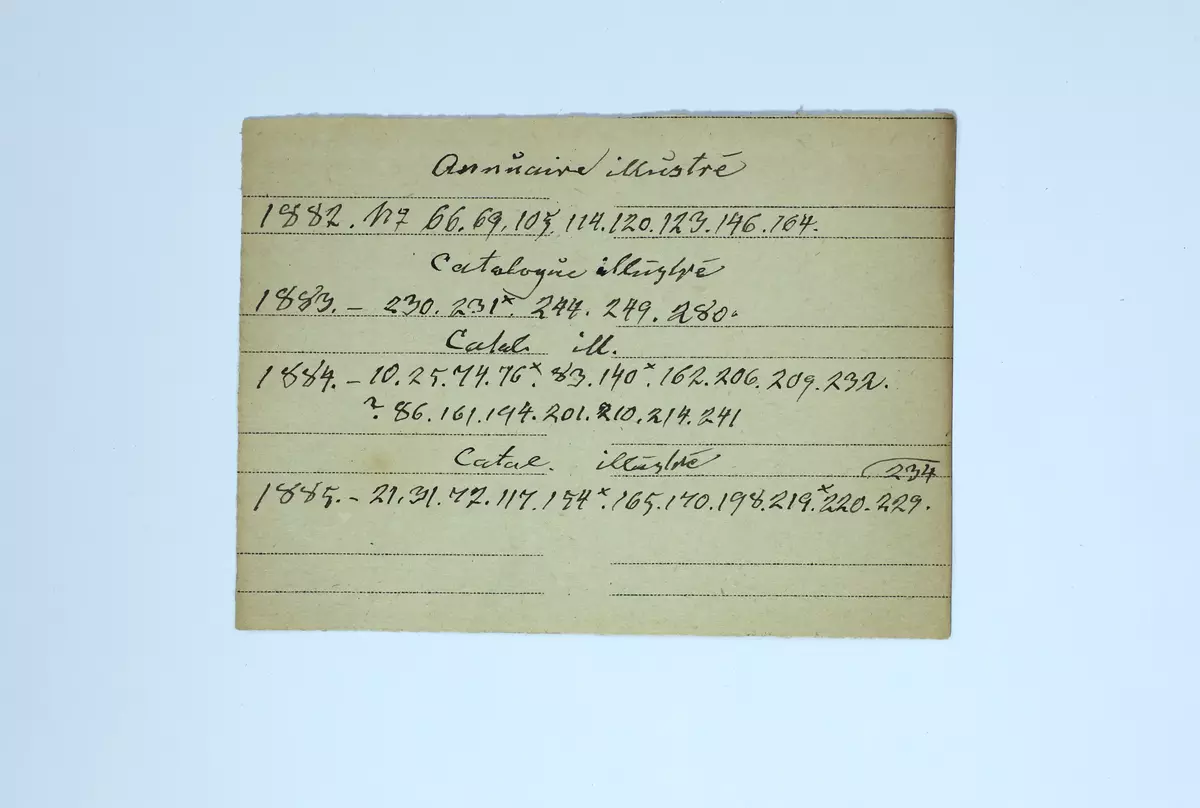 Annuaire illustré
1882. N7 66. 69. 105. 114. 120. 123. 146. 164.
Catalogue illustré
1883. – 230. 231ˣ. 244. 249. 280.
Catal. ill.
1884. – 10. 25. 74. 76ˣ. 83. 140ˣ. 162. 206. 209. 232.
? 86. 161. 194. 201. 210. 214. 241
Catal. illustré
234
1885. – 21. 31. 72. 117. 154ˣ. 165. 170. 198. 219ˣ. 220. 229.